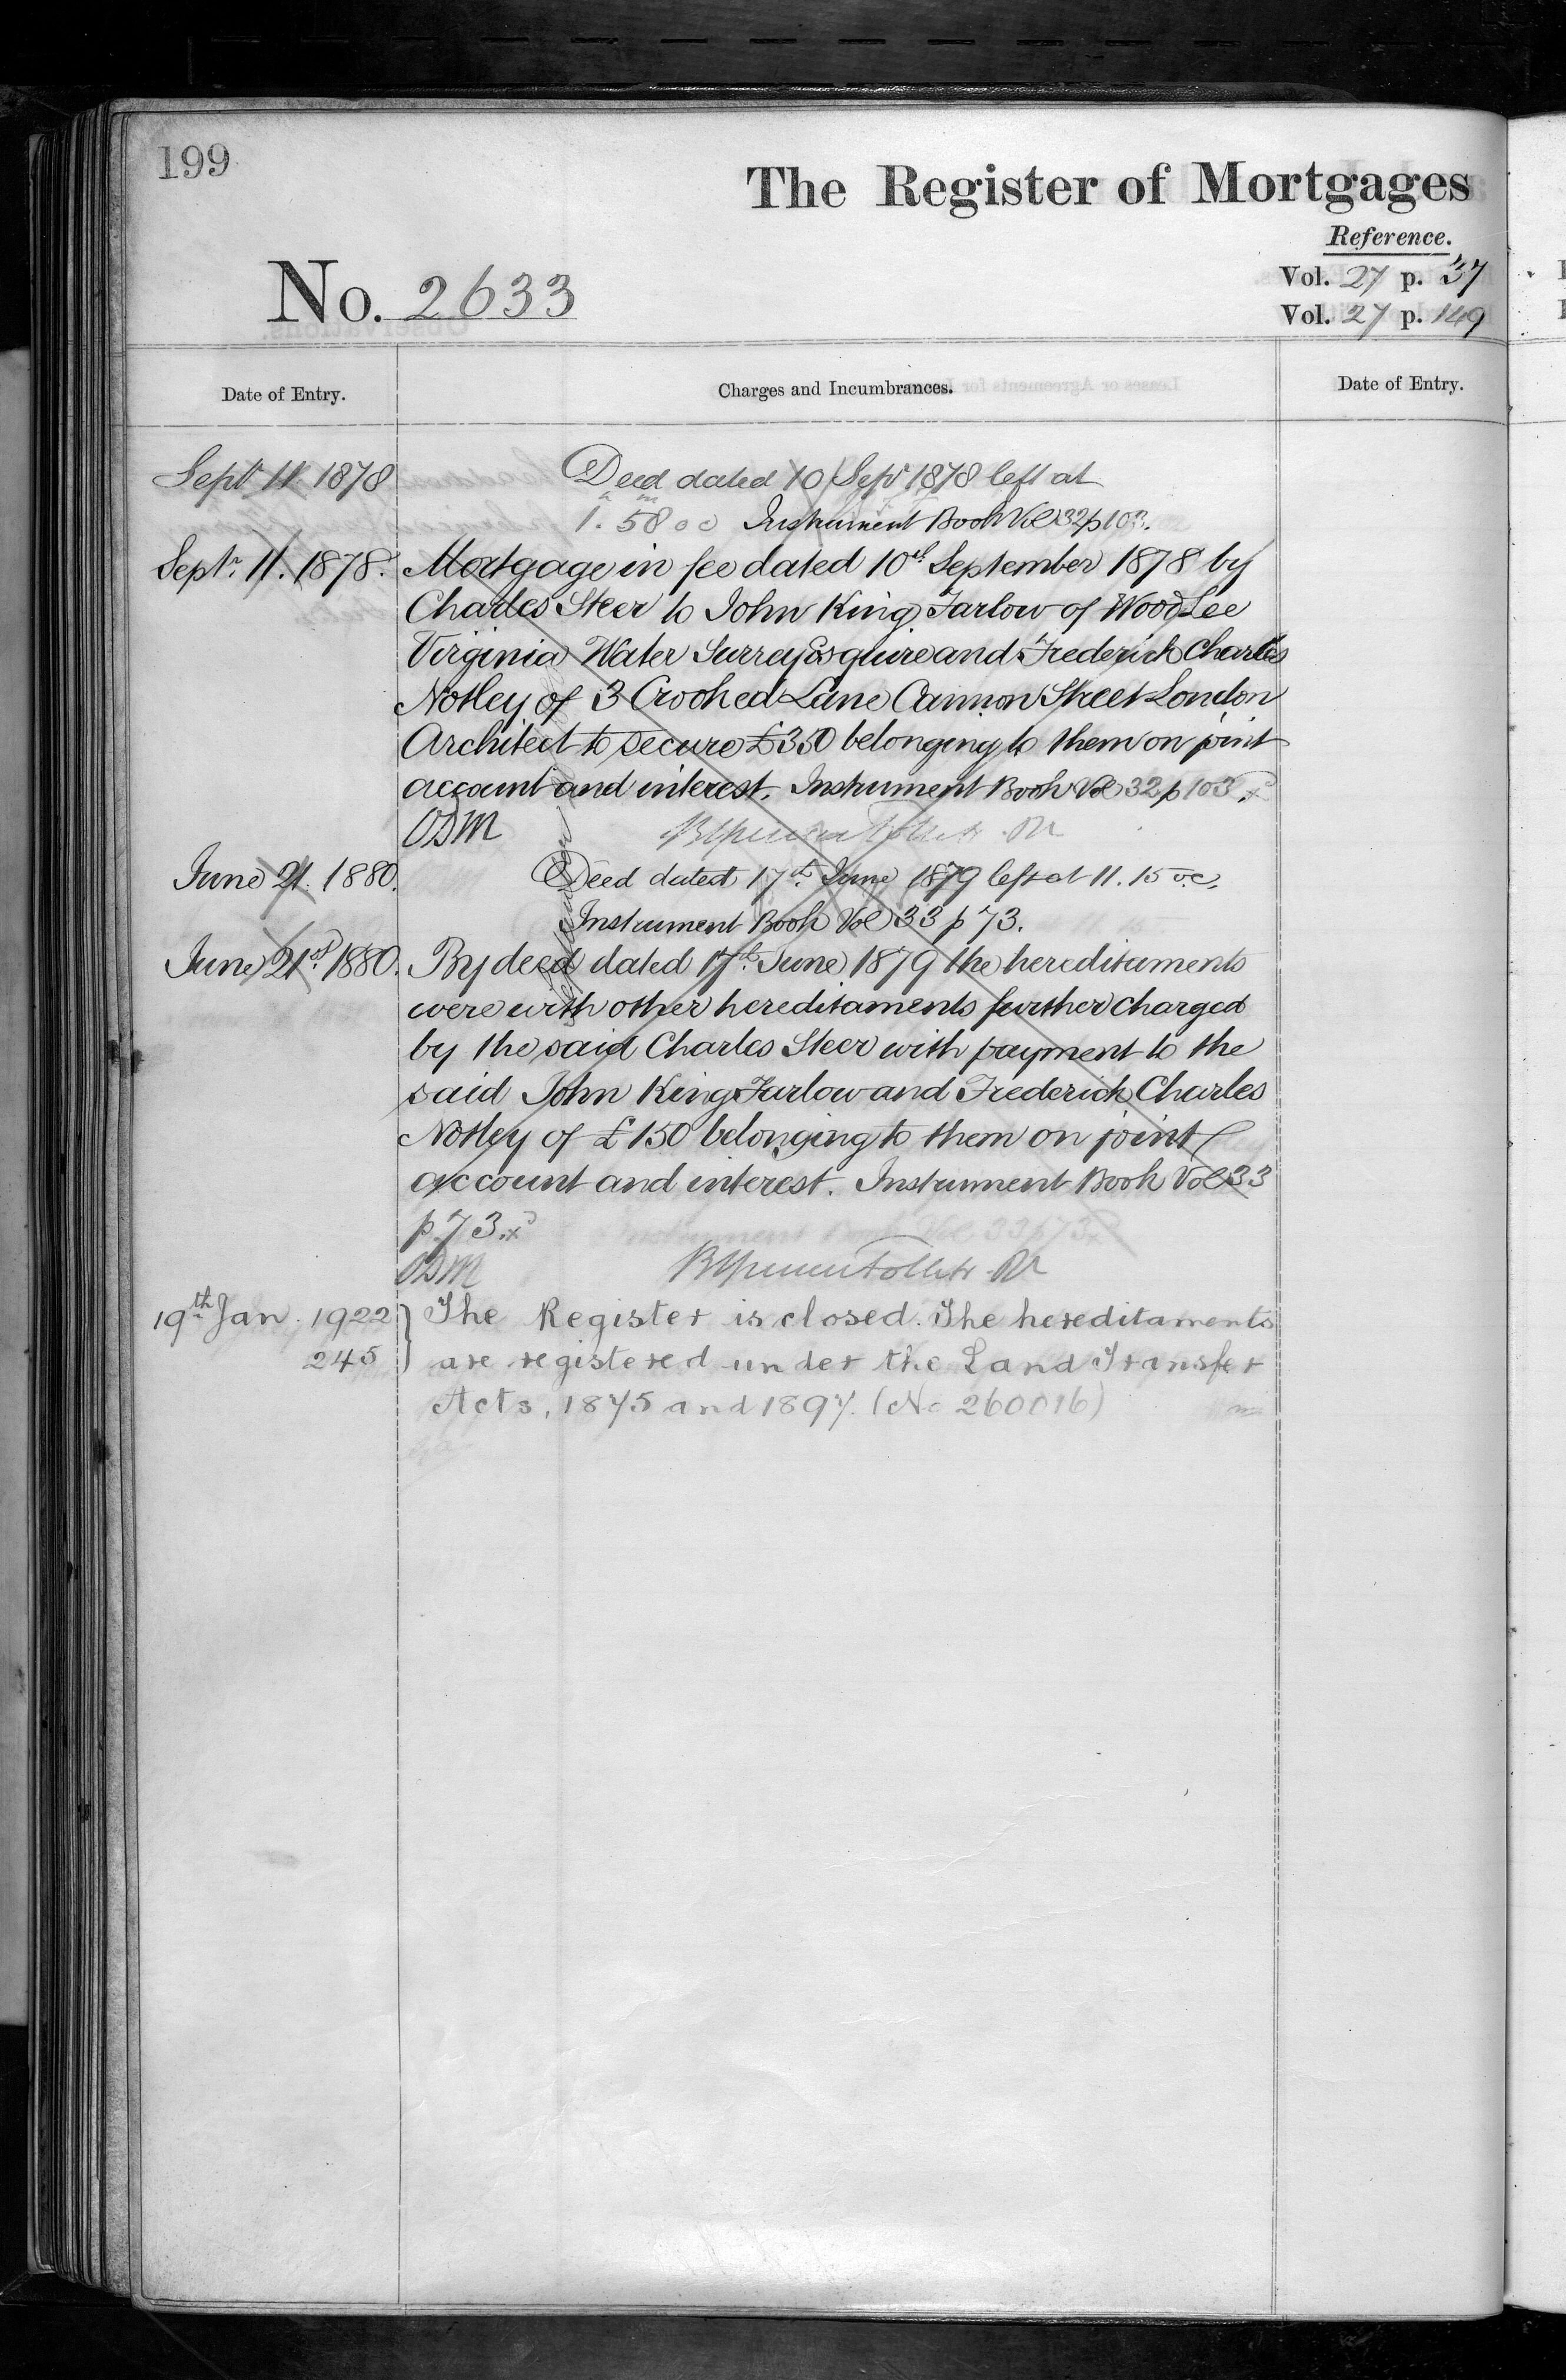 199
The Register of Mortgages
Reference.
No. 2633
Vol. 27 p. 37
Vol. 27 p. 149
Date of Entry.
Charges and Incumbrances.
Date of Entry.
Sept 11. 1878
Deed dated 10 Sepr 1878 left at
1.h 58m oc Instrument Book Vol 32 p 103.
Septr. 11. 1878.
Mortgage in fee dated 10th September 1878 by
Charles Steer to John King Farlow of Wood Lee
Virginia Water Surrey Esquire and Frederick Charles
Notley of 3 Crooked Lane Cannon Street London
Architect to secure £350 belonging to them on joint
account and interest. Instrument Book Vol 32 p 103.
June 21. 1880.
Deed dated 17th June 1879 left at 11.15 oc.
Instrument Book Vol 33 p 73.
June 21st 1880.
By deed dated 17th June 1879 the hereditaments
were with other hereditaments further charged
by the said Charles Steer with payment to the
said John King Farlow and Frederick Charles
Notley of £150 belonging to them on joint
account and interest. Instrument Book Vol 33
p 73.
19th Jan. 1922
245
The Register is closed. The hereditaments
are registered under the Land Transfer
Acts, 1875 and 1897. (No 260016)